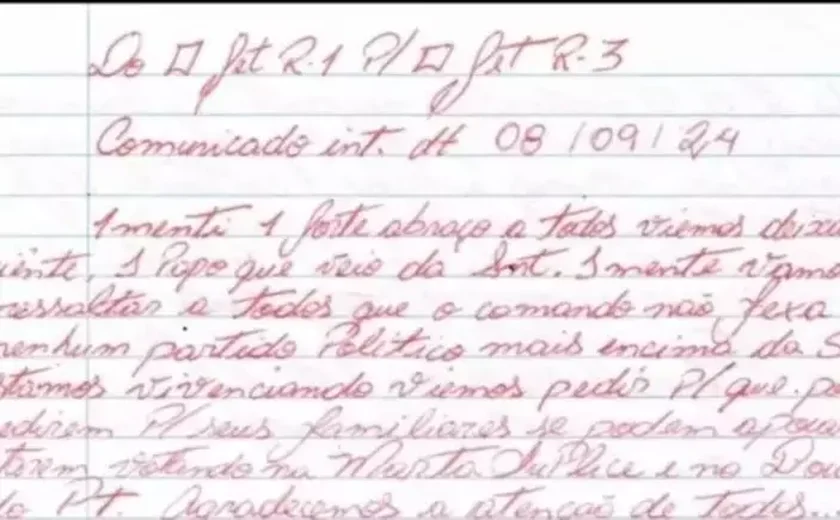 Do □ Jet R.1 P/ □ Jet R-3
Comunicado int. dt 08/09/24
1menti 1 forte abraço a todos viemos deixa
iente, 1 Papo que veio da Smt. 1mente vamo
ressaltar a todos que o comando não fexa
nenhum partido Politico mais encima da S
stamos vivenciando viemos pedir P/ que. pe
edirem P/ seus familiares se podem apoia
terem votando na Marta Suplice e no Bou
do Pt. Agradecemos a atencão de todos...